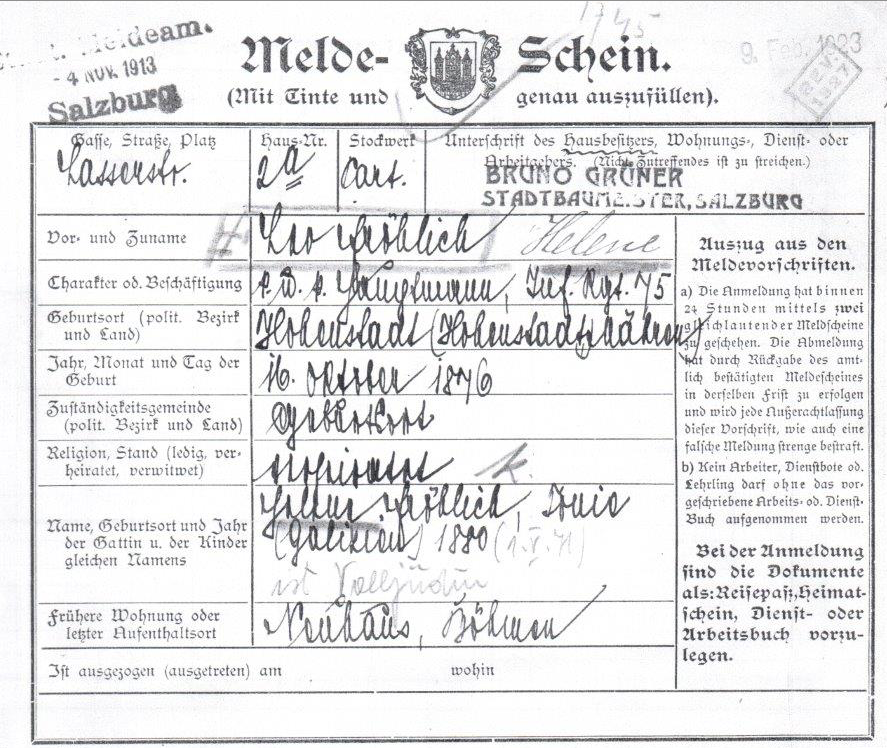 Meldeam.
4 NOV. 1913
Salzburg
1745
9. Feb. 1923
Melde-Schein.
(Mit Tinte und genau auszufüllen).
Gasse, Straße, Platz
Lasserstr.
Haus-Nr.
2a
Stockwerk
Part.
Unterschrift des Hausbesitzers, Wohnungs-, Dienst- oder
Arbeitgebers. (Nicht Zutreffendes ist zu streichen.)
BRUNO GRÜNER
STADTBAUMEISTER, SALZBURG
Vor- und Zuname
Leo Fröhlich Helene
Charakter od. Beschäftigung
k. u. k. Hauptmann, Inf. Rgt. 75
Geburtsort (polit. Bezirk
und Land)
Hohenstadt (Hohenstadt, Mähren)
Jahr, Monat und Tag der
Geburt
16. Oktober 1876
Zuständigkeitsgemeinde
(polit. Bezirk und Land)
Geburtsort
Religion, Stand (ledig, ver-
heiratet, verwitwet)
verheiratet k.
Name, Geburtsort und Jahr
der Gattin u. der Kinder
gleichen Namens
Helene Fröhlich,
(Galizien) 1880
ist Volljüdin
Frühere Wohnung oder
letzter Aufenthaltsort
Neuhaus, Böhmen
Ist ausgezogen (ausgetreten) am wohin
Auszug aus den
Meldevorschriften.
a) Die Anmeldung hat binnen
24 Stunden mittels zwei
gleichlautender Meldscheine
zu geschehen. Die Abmeldung
hat durch Rückgabe des amt-
lich bestätigten Meldescheines
in derselben Frist zu erfolgen
und wird jede Außerachtlassung
dieser Vorschrift, wie auch eine
falsche Meldung strenge bestraft.
b) Kein Arbeiter, Dienstbote od.
Lehrling darf ohne das vor-
geschriebene Arbeits- od. Dienst-
Buch aufgenommen werden.
Bei der Anmeldung
sind die Dokumente
als: Reisepaß, Heimat-
schein, Dienst- oder
Arbeitsbuch vorzu-
legen.